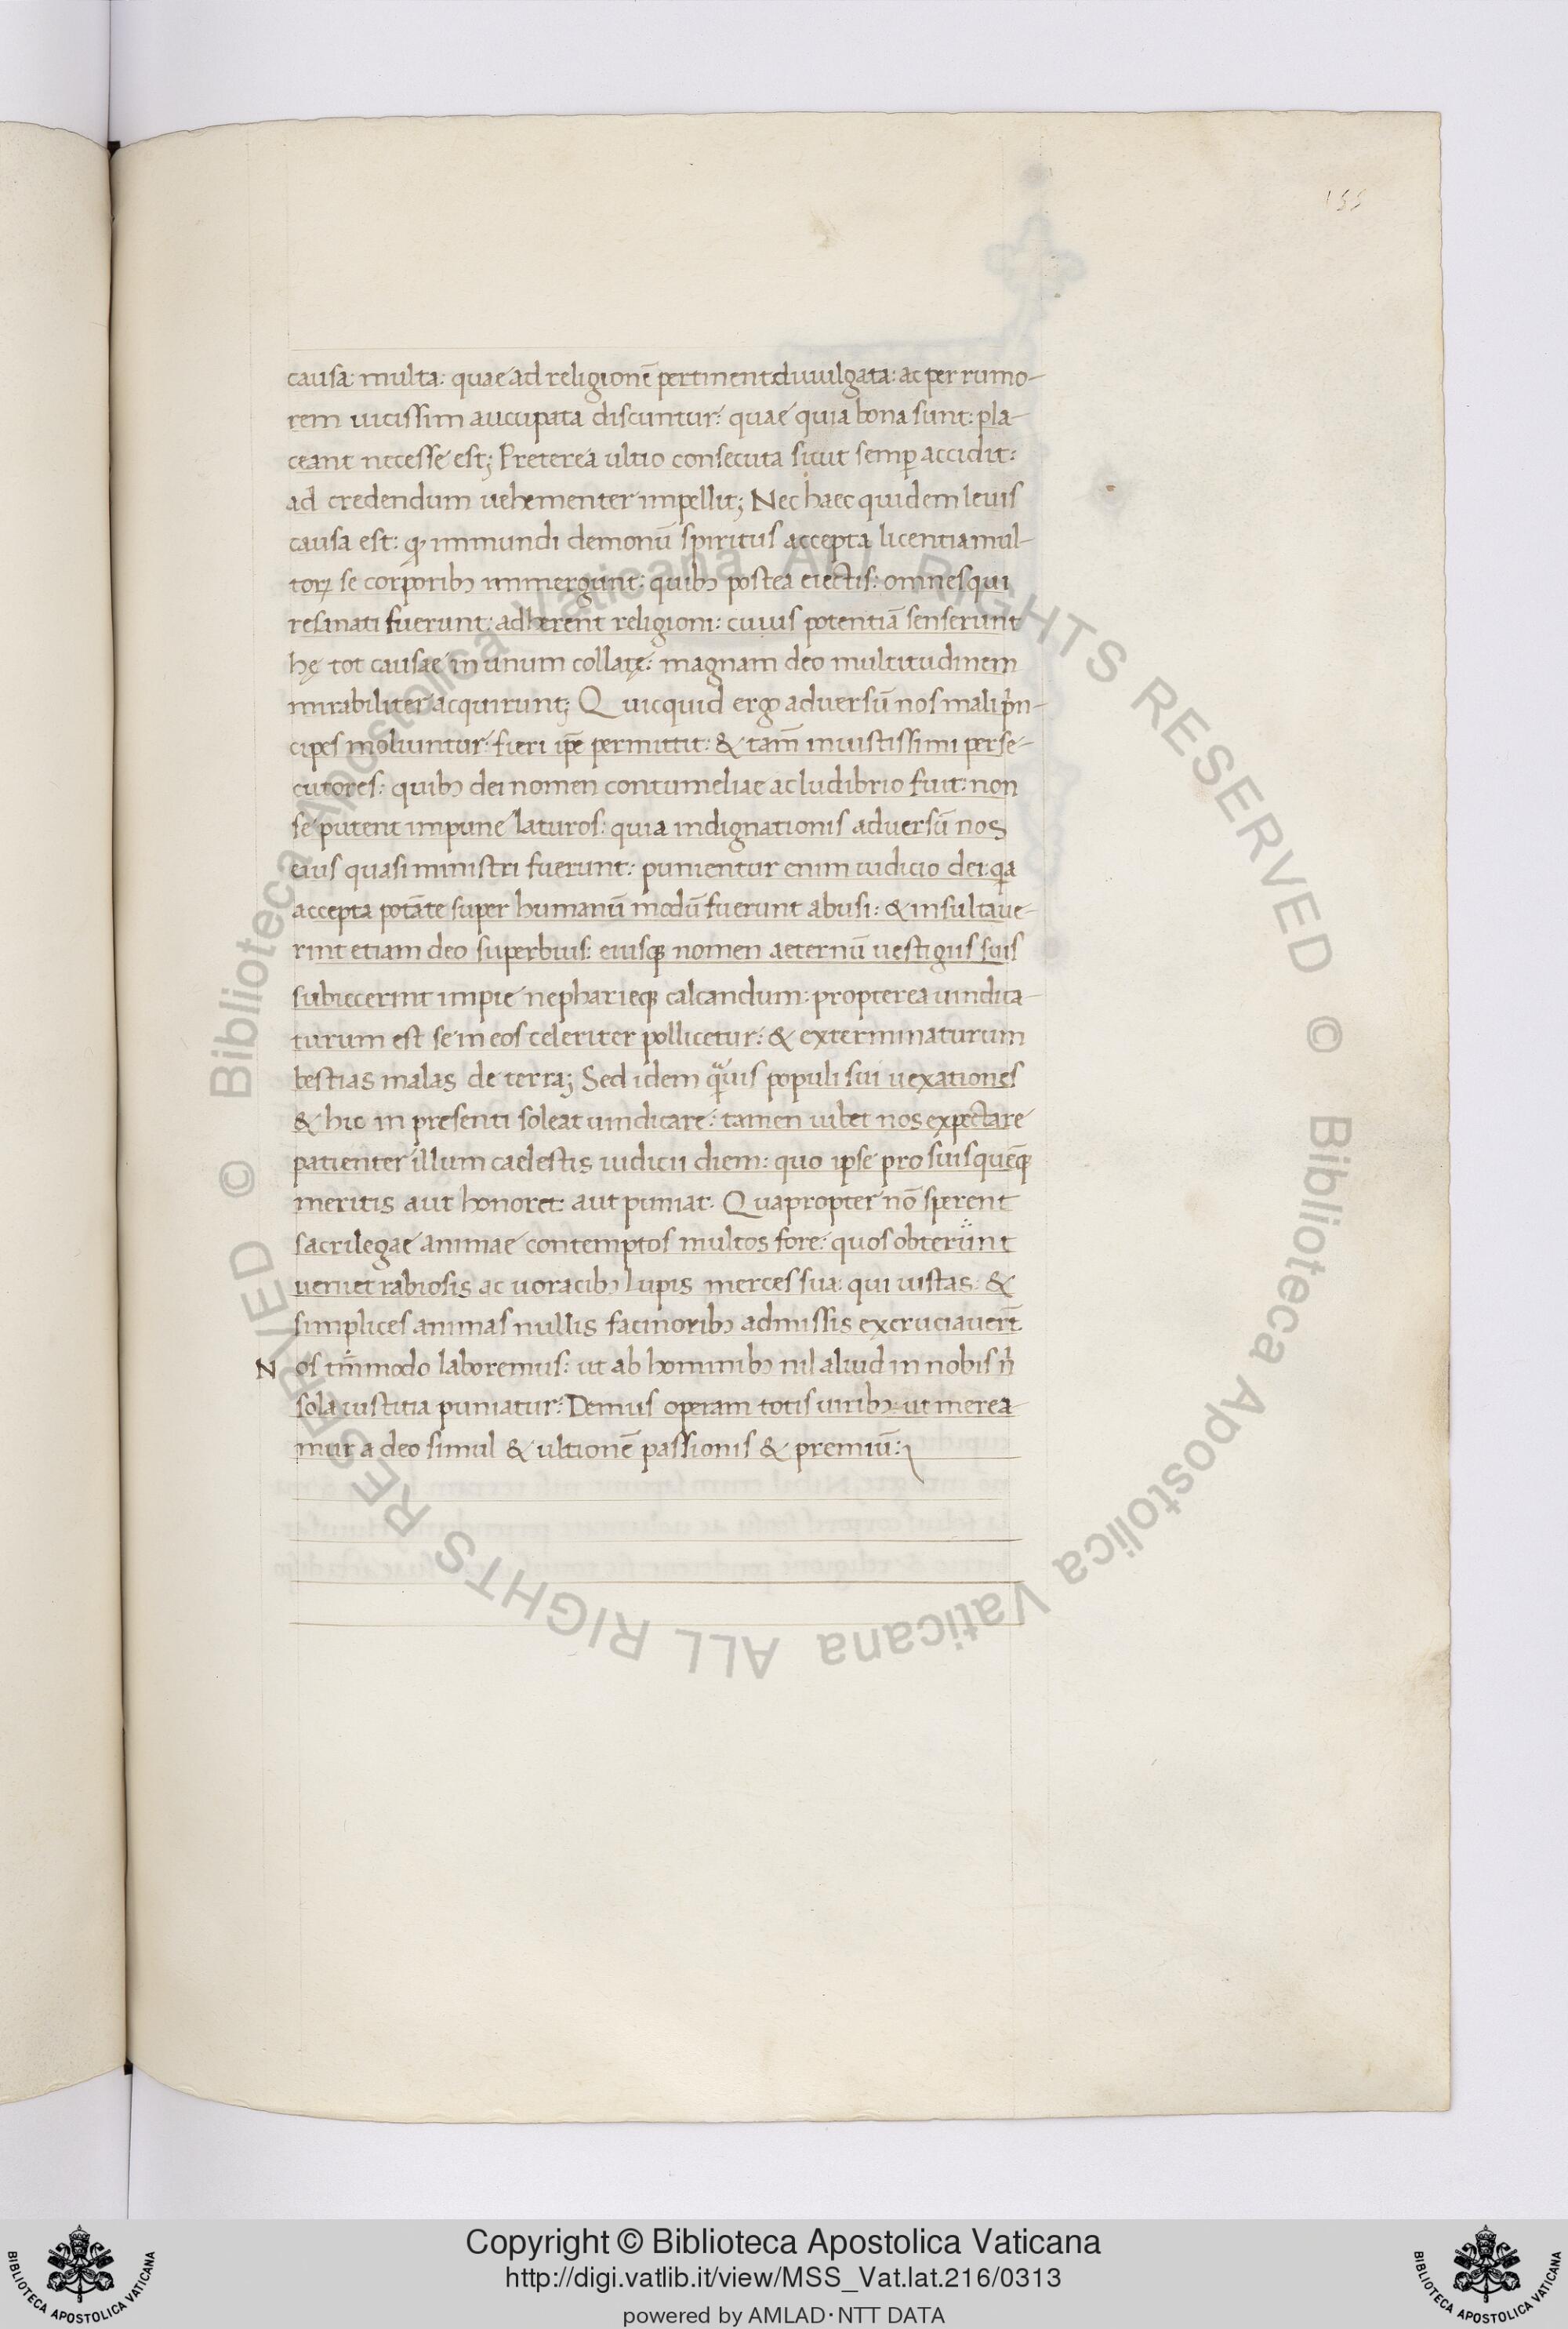 155
causa: multa: quae ad religionē pertinent diuulgata: ac per rumo-
rem uicissim aucupata discuntur: quae quia bona sunt: pla-
ceant necesse est; Preterea ultio consecuta sicut semp accidit:
ad credendum uehementer impellit; Nec haec quidem leuis
causa est: ꝙ immundi demonū spiritus accepta licentia mul-
toꝝ se corporibꝫ immergunt: quibꝫ postea eiectis: omnes qui
resinati fuerunt: adherent religioni: cuius potentiā senserunt
hę tot causae in unum collatę: magnam deo multitudinem
mirabiliter acquirunt; Quicquid ergo aduersū nos mali prin-
cipes moliuntur: fieri ipē permittit: & tam̄ iniustissimi perse-
cutores: quibꝫ dei nomen contumeliae ac ludibrio fuit: non
se putent impune laturos: quia indignationis aduersū nos
eius quasi ministri fuerunt: punientur enim iudicio dei: qa
accepta potāte super humanū modū fuerunt abusi: & insultaue-
rint etiam deo superbius: eiusqꝫ nomen aeternū uestigiis suis
subiecerint impie nepharieqꝫ calcandum: propterea uindica-
turum est se in eos celeriter pollicetur: & exterminaturum
bestias malas de terra; Sed idem quis populi sui uexationes
& hic in presenti soleat uindicare: tamen iubet nos expectare
patienter illum caelestis iudicii diem: quo ipse pro suis quēqꝫ
meritis aut honoret: aut puniat. Quapropter nō sperent
sacrilegae animae contemptos multos fore: quos obterunt
ueniet rabiosis ac uoracibꝫ lupis merces sua: qui iustas: &
simplices animas nullis facinoribꝫ admissis excruciauert̄
Nos tm̄modo laboremus: ut ab hominibꝫ nil aliud in nobis n̄
sola iustitia puniatur: Demus operam totis uiribꝫ ut merea-
mur a deo simul & ultionē passionis & premiū:
© Biblioteca Apostolica Vaticana ALL RIGHTS RESERVED © Biblioteca Apostolica Vaticana ALL RIGHTS RESERVED
BIBLIOTECA APOSTOLICA VATICANA
Copyright © Biblioteca Apostolica Vaticana
http://digi.vatlib.it/view/MSS_Vat.lat.216/0313
powered by AMLAD·NTT DATA
BIBLIOTECA APOSTOLICA VATICANA